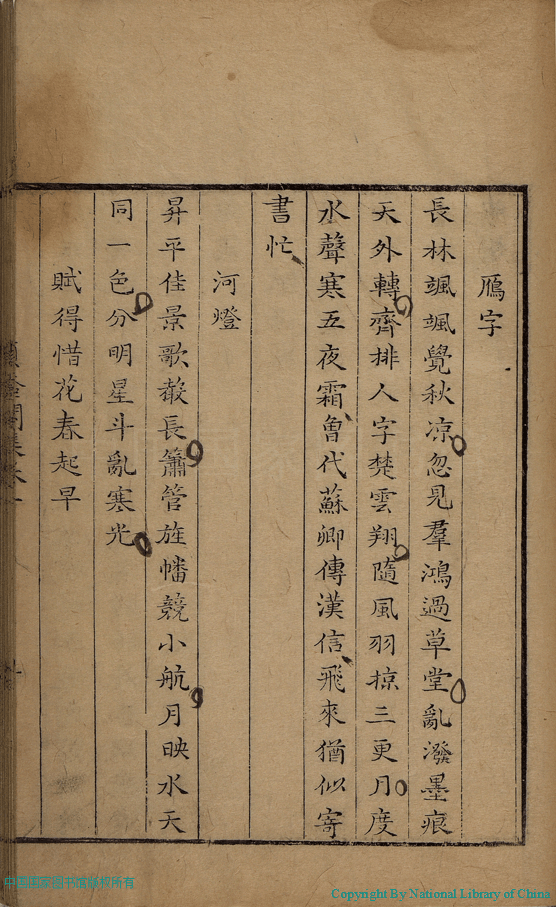 鴈字
長林颯颯覺秋凉忽見羣鴻過草堂亂潑墨痕
天外轉齊排人字楚雲翔隨風羽掠三更月度
水聲寒五夜霜曾代蘇卿傳漢信飛來猶似寄
書忙
河燈
昇平佳景歌聲長簫管旌幡競小航月映水天
同一色分明星斗亂寒光
賦得惜花春起早
中国国家图书馆版权所有
Copyright By National Library of China